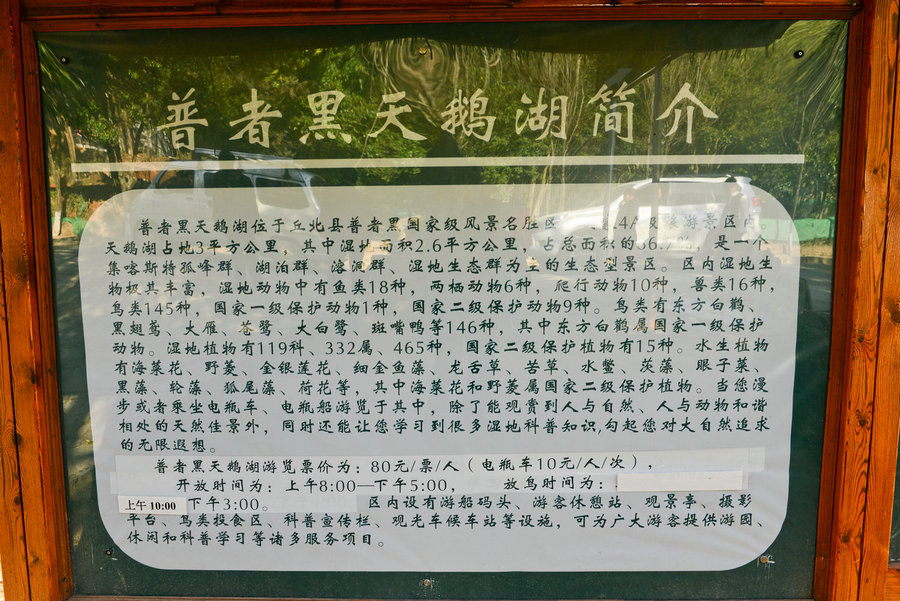 普者黑天鹅湖简介
普者黑天鹅湖位于丘北县普者黑国家级风景名胜区、 家4A级旅游景区内。
天鹅湖占地3平方公里，其中湿地面积2.6平方公里，占总面积的86.7%，是一个
集喀斯特孤峰群、湖泊群、溶洞群、湿地生态群为主的生态型景区。区内湿地生
物极其丰富，湿地动物中有鱼类18种，两栖动物6种，爬行动物10种，兽类16种，
鸟类145种，国家一级保护动物1种，国家二级保护动物9种。鸟类有东方白鹳、
黑翅鸢、大雁、苍鹭、大白鹭、斑嘴鸭等146种，其中东方白鹳属国家一级保护
动物。湿地植物有119科、332属、465种，国家二级保护植物有15种。水生植物
有海菜花、野菱、金银莲花、细金鱼藻、龙舌草、苦草、水鳖、茨藻、眼子菜、
黑藻、轮藻、狐尾藻、荷花等，其中海菜花和野菱属国家二级保护植物。当您漫
步或者乘坐电瓶车、电瓶船游览于其中，除了能观赏到人与自然、人与动物和谐
相处的天然佳景外，同时还能让您学习到很多湿地科普知识,勾起您对大自然追求
的无限遐想。
普者黑天鹅湖游览票价为：80元/票/人（电瓶车10元/人/次），
开放时间为：上午8:00—下午5:00， 放鸟时间为：
上午 10:00 下午3:00。 区内设有游船码头、游客休憩站、观景亭、摄影
平台、鸟类投食区、科普宣传栏、观光车候车站等设施，可为广大游客提供游园、
休闲和科普学习等诸多服务项目。